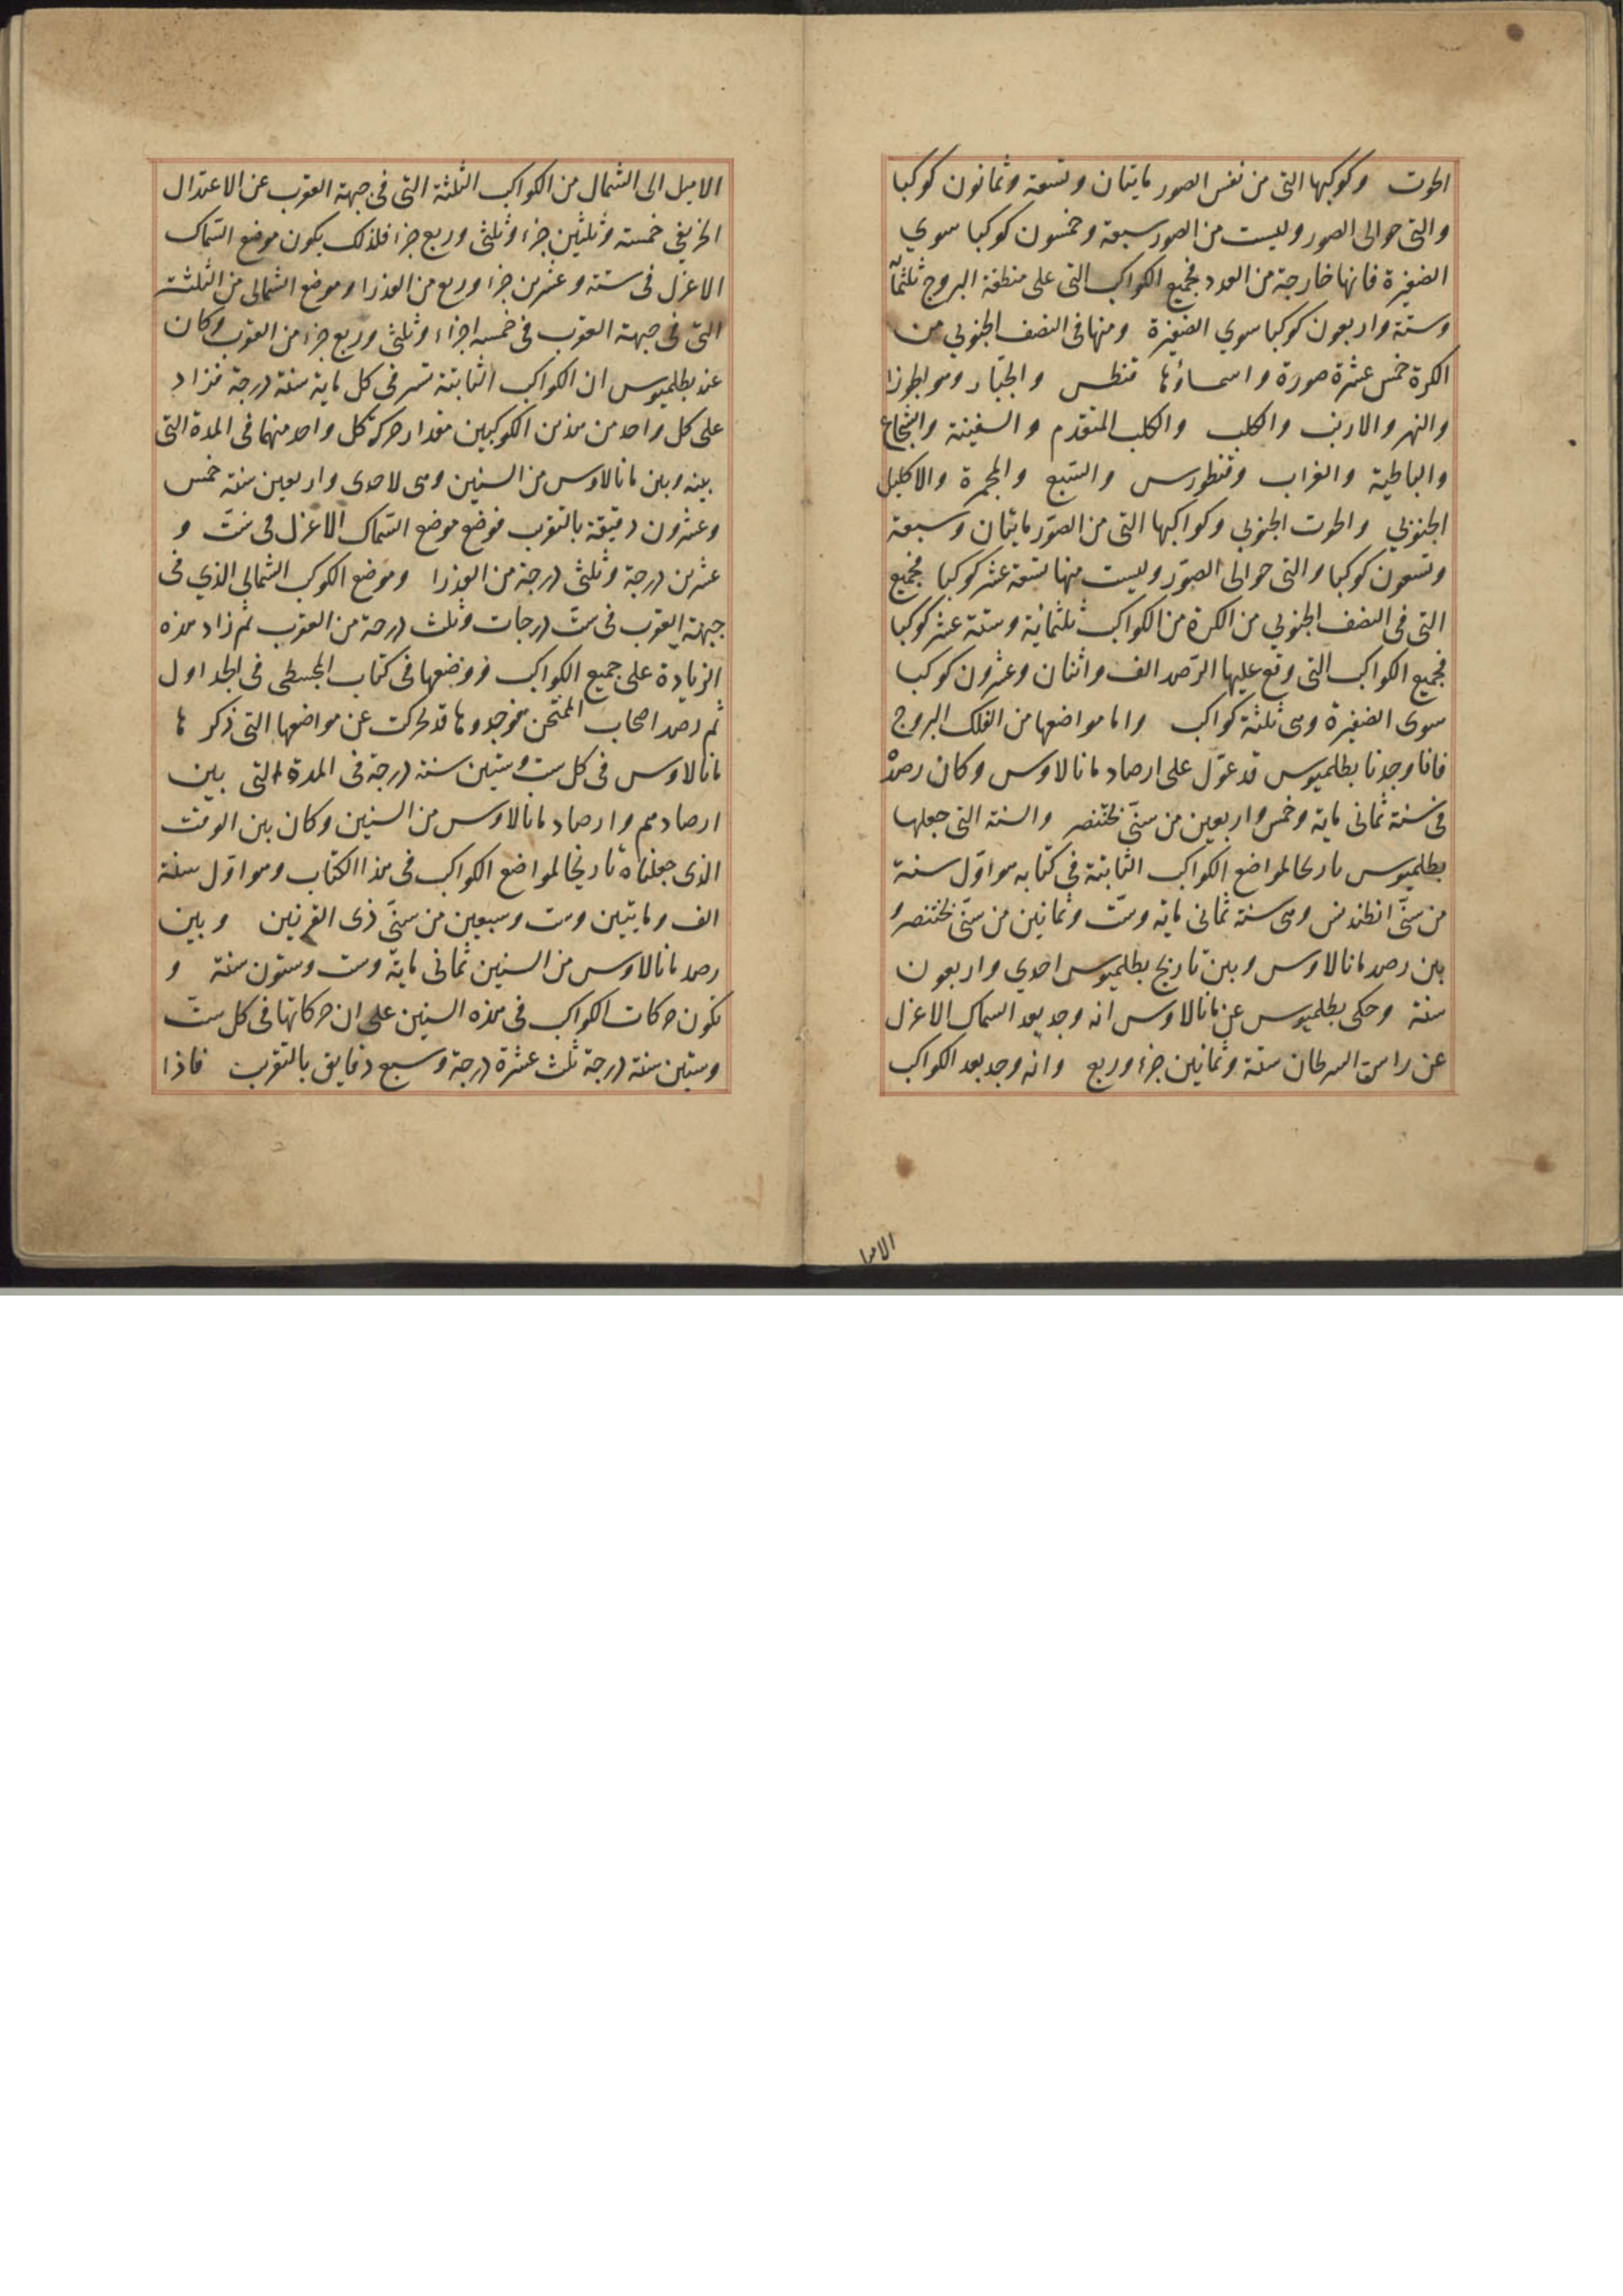 الحوت وكوكبها التى من نفس الصور مايتان وتسعة وثمانون كوكبا
والتى حوالى الصور وليست من الصور سبعة وخمسون كوكبا سوي
الضفيرة فانها خارجة من العدد فجميع الكواكب التى على منطقة البروج ثلثمأة
وستة واربعون كوكبا سوي الضفيرة ومنها فى النصف الجنوبي من
الكرة خمس عشرة صورة واسماؤها قنطس والجبّار وهو
والنهر والارنب والكلب والكلب المتقدم والسفينة والشجاع
والباطية والغراب وقنطورس والسّبع والمجمرة والاكليل
الجنوبي والحوت الجنوبي وكواكبها التى من الصوّر مايتان وسبعة
وتسعون كوكبا والتى حوالى الصوّر وليست منها تسعة عشر كوكبا فجميع
التى فى النصف الجنوبي من الكرة من الكواكب ثلثمائية وستة عشر كوكبا
فجميع الكواكب التى وقع عليها الرّصد الف واثنان وعشرون كوكبا
سوى الضفيرة وهى ثلثة كواكب واما مواضعها من الفلك البروج
فانا وجدنا بطلميوس قد عوّل على ارصاد مانالاوس وكان رصدْ
فى سنة ثمانى ماية وخمس واربعين من سنّى بختنصر والسنة التى جعلها
بطلميوس تاريخا لمواضع الكواكب الثابتة في كتابه هو اوّل سنة
من سنّى انطنينس وهى سنة ثمانى ماية وستّ وثمانين من سنّى بختنصر و
بين رصد مانالاوس وبين تاريخ بطلميوس احدي واربعون
سنة وحكى بطلميوس عن مانالاوس انه وجد بعد السماك الاعزل
عن راس السرطان ستة وثمانين جزء وربع وانه وجد بعد الكواكب
الاميل الى الشمال من الكواكب الثلثة التى فى جبهة العقرب عن الاعتدال
الخريفي خمسة وثلثين جزء وثلثى وربع جزء فلذلك يكون موضع السّماك
الاعزل فى ستة وعشرين جزء وربع من العذرا وموضع الشمالى من الثلثة
التى فى جبهة العقرب فى خمسه اجزاء وثلثى وربع جزء من العقرب وكان
عند بطلميوس ان الكواكب الثابتة تسير فى كل ماية سنة درجة فزاد
على كل واحد من هذين الكوكبين مقدار حركة كل واحد منهما فى المدة التى
بينه وبين مانالاوس من السنين وهى لاحدى واربعين سنة خمس
وعشرون دقيقة بالتقرب فوضع موضع السّماك الاعزل فى ستّ و
عشرين درجة وثلثى درجة من العذرا وموضع الكوكب الشمالى الذي فى
جبهة العقرب فى ستّ درجات وثلث درجة من العقرب ثم زاد هذه
الزيادة على جميع الكواكب ووضعها فى كتاب المجسطى فى الجداول
ثم رصد اصحاب الممتحن فوجدوها قد تحركت عن مواضعها التى ذكرها
مانالاوس فى كل ست وستين سنة درجة فى المدة التى بين
ارصادهم وارصاد مانالاوس من السنين وكان بين الوقت
الذى جعلناه تاريخا لمواضع الكواكب فى هذا الكتاب وهو اوّل سنة
الف ومايتين وست وسبعين من سنّى ذى القرنين وبين
رصد مانالاوس من السنين ثمانى ماية وست وستون سنة و
تكون حركات الكواكب فى هذه السنين على ان حركاتها فى كل ستّ
وستين سنة درجة ثلث عشرة درجة وسبع دقايق بالتقرب فاذا